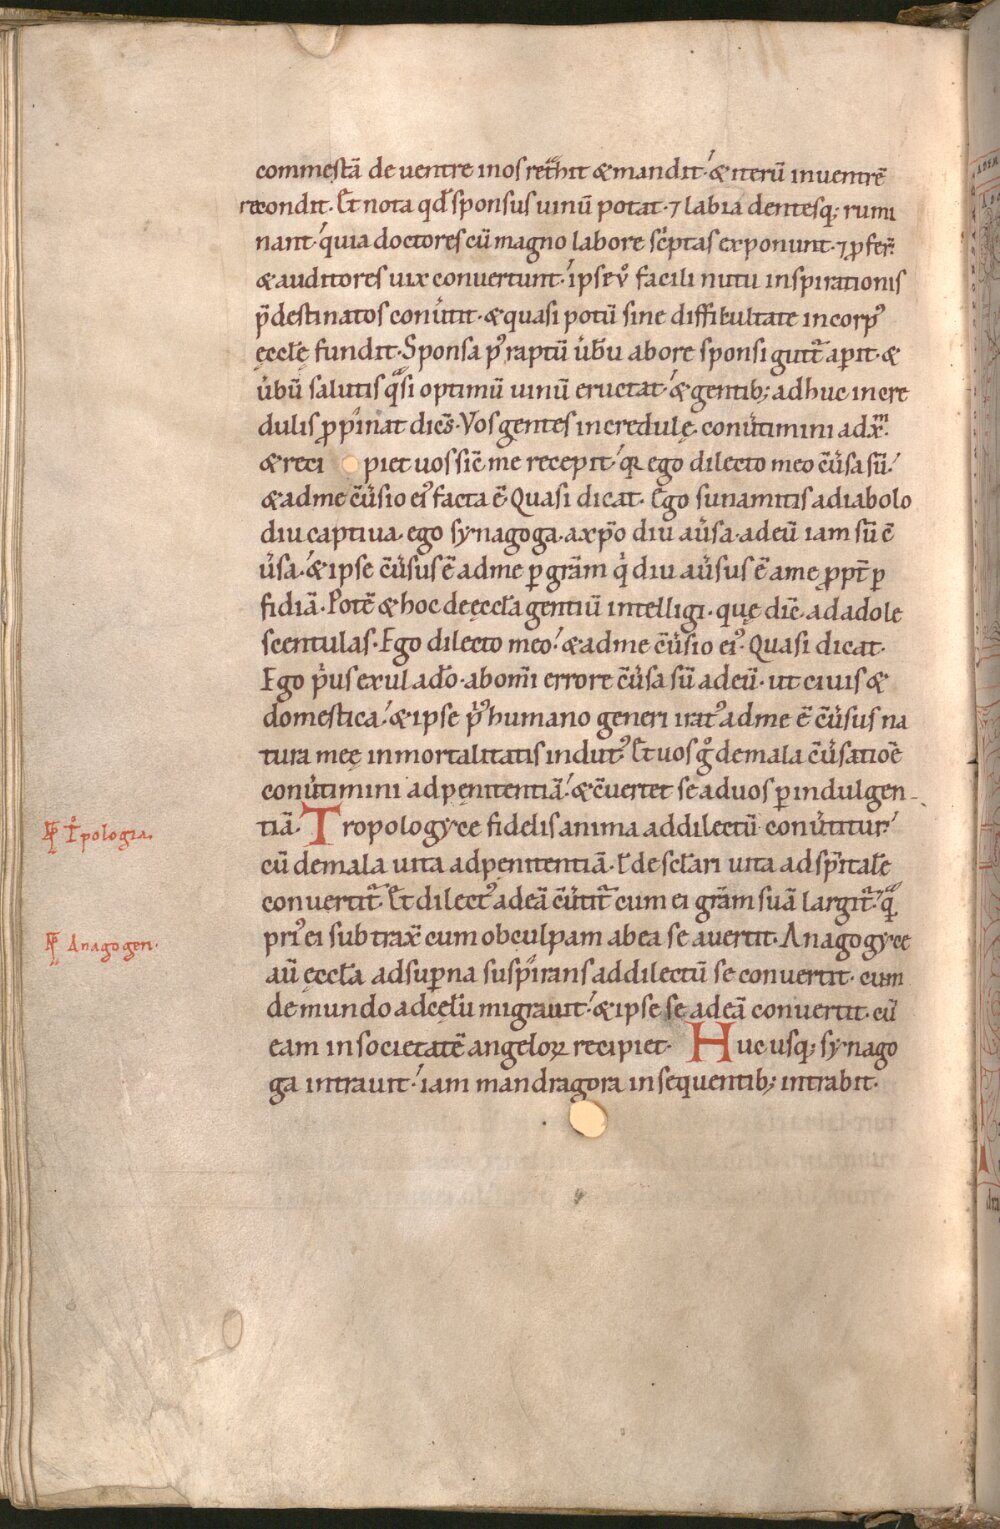 commestā de uentre in os ret̄hit & mandit· & iterū in uentrē
recondit. Et nota qd̄ sponsus uinū potat· ⁊ labia dentesq; rumi
nant· quia doctores cū magno labore sc̄ptas exponunt· ⁊ ꝓfer̄
& auditores uix conuertunt· ipse ů facili nutu inspirationis
p̄destinatos conu̓tit· & quasi potū sine diffikultate in corpꝰ
ęccłę fundit. Sponsa pꝰ raptū u̓bū ab ore sponsi gutt̄ ap̄it· &
u̓bū salutis qᵃsi optimū uinū eructat· & gentib; adhuc incre
dulis ꝓpinat dicēs. Vos gentes incredulę conu̓timini ad xp̄m.
& reci piet uos sic̄ me recepit· qꝛ ego dilecto meo c̄u̓sa sū·
& ad me c̄u̓sio eiꝰ facta ē. Quasi dicat. Ego sunamitis a diabolo
diu captiua· ego synagoga· a xp̄o diu au̓sa· ad eū iam sū c̄
u̓sa· & ipse c̄u̓sus ē ad me ꝑ grām qⁱ diu au̓sus ē a me ꝓpt̄ ꝑ
fidiā. Potē & hoc de ęccła gentiū intelligi· quę dic̄ ad adole
scentulas. Ego dilecto meo· & ad me c̄u̓sio eiꝰ. Quasi dicat.
Ego pⁱus exul a do· ab om̄i errore c̄u̓sa sū ad eū· ut ciuis &
domestica· & ipse pⁱꝰ humano generi iratꝰ ad me ē c̄u̓sus na
tura meę inmortalitatis indutꝰ. Et uos gͦ de mala c̄u̓satiōe
conu̓timini ad penitentiā· & c̄uertet se ad uos ꝑ indulgen-
tiā. Tropologyce fidelis anima ad dilectū conu̓titur·
cū de mala uita ad penitentiā· ł de sclari uita ad sp̄itale
conuertit̄. Et dilectꝰ ad eā c̄u̓tit̄ cum ei grām suā largit̄· qᵃ
priꝰ ei subtrax̄ cum ob culpam ab ea se auertit. Anagogyce
aū ęccła ad suꝑna suspirans ad dilectū se conuertit· cum
de mundo ad cęlū migrauit· & ipse se ad eā conuertit· cū
eam in societatē angeloꝝ recipiet. Huc usq; synago
ga intrauit· iam mandragora in sequentib; intrabit.
Tͦpologia.
Anagogen.